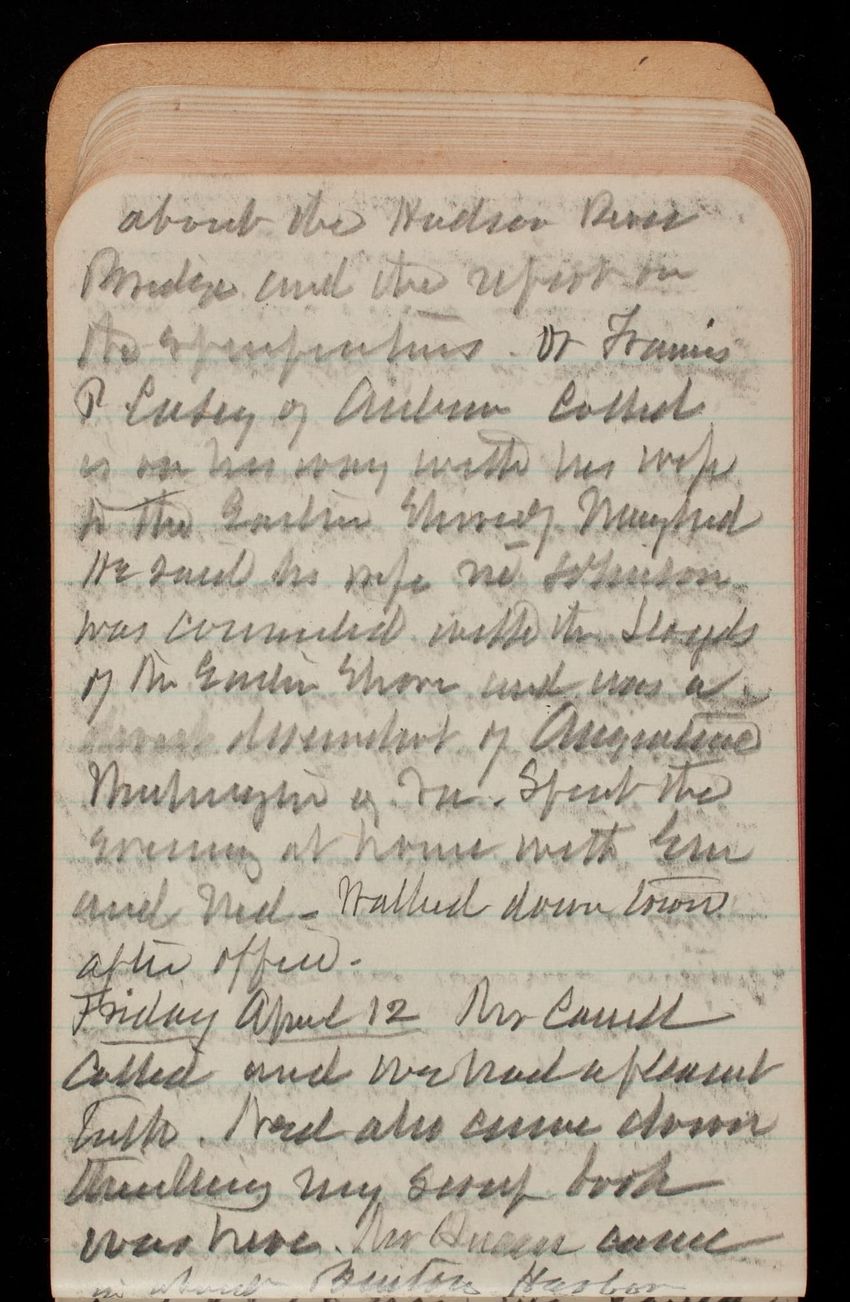 about the Hudson River
Bridge and the report on
the specifications. Dr Francis
P of Auburn called
is on his way with his wife
to the Eastern Shore of Maryland
He said his wife née Johnson
was connected with the Lloyds
of the Eastern Shore and was a
descendant of Augustine
Washington of Va. Spent the
evening at home with Em
and Ned - Walked down town
after office.
Friday April 12 Mr
called and we had a pleasant
talk. Ned also came down
thinking my scrap book
was here. Mr came
in about Benton Harbor